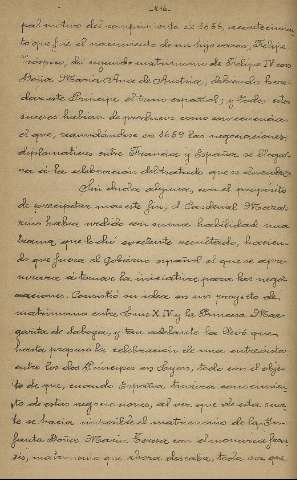 pal motivo del rompimiento de 1656, accidentemen
to que fué el nacimiento de un hijo varon, Felipe
Próspero, de segundo matrimonio de Felipe IV con
Doña Maria Ana de Austria, debiendo here
dar este Principe el trono español; y todos estos
sucesos habian de producir como consecuencia
el que, reanudándose en 1659 las negociaciones
diplomáticas entre Francia y España se llega
ra á la celebracion del tratado que se deseaba
Sin duda alguna, con el propósito
de precipitar mas este fin, el Cardenal Maza
rino habia urdido con suma habilidad una
trama, que le dió excelente resultado, hacien
do que fuera el Gobierno español el que se apre
surara á tomar la iniciativa para las nego
ciaciones. Consistió su idea en un proyecto de
matrimonio entre Luis XIV y la Princesa Mar
garita de Saboya, y tan adelante la llevó que
hasta preparó la celebracion de una entrevista
entre los dos Principes en Lyon, todo con el obje
to de que, cuando España tuviera conocimien
to de estas negociaciones, al ver que de esta suer
te se hacia imposible el matrimonio de la In
fanta Doña Maria Teresa con el monarca fran
cés, matrimonio que ahora deseaba, toda vez que